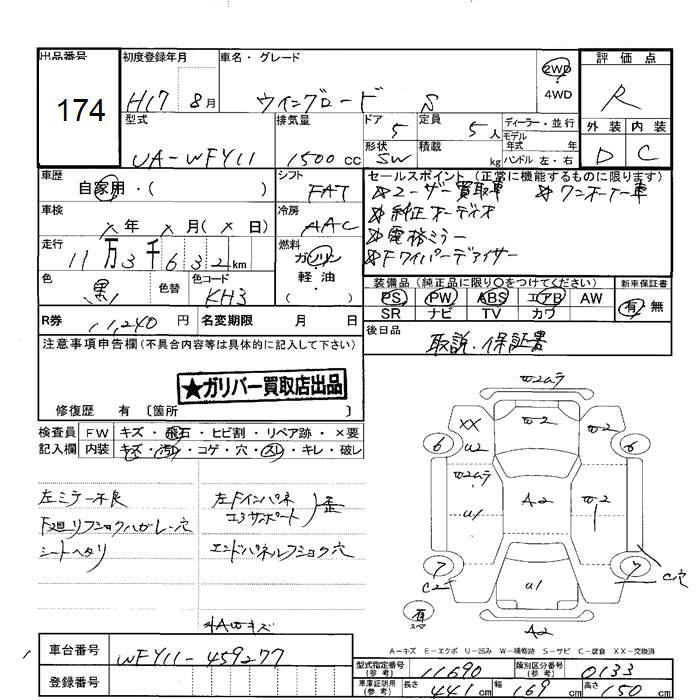 出品番号 初度登録年月 車名・グレード 評価点
174
H17 8月 ウイングロード S 2WD 4WD R
型式 排気量 ドア 5 定員 5人 ディーラー・並行 外装 内装
UA-WFY11 1500cc 形状 SW 積載 kg モデル年式 年式 ハンドル 左・右 D C
車歴 シフト セールスポイント(正常に機能するものに限ります)
自家用・( ) FAT ユーザー買取車 ワンオーナー車
車検 冷房 純正オーディオ
×年 ×月(×日) AAC 電格ミラー
走行 燃料 Fワイパーデアイサー
11万3千632km ガソリン・軽油
色 色替 色コード ( ) 装備品(純正品に限り○をつけてください) 新車保証書
黒 KH3 PS PW ABS エアB AW 有・無
SR ナビ TV カワ
R券 11,240円 名変期限 月 日 後日品 取説・保証書
注意事項申告欄(不具合内容等は具体的に記入して下さい)
★ガリバー買取店出品
修復歴 有〔箇所 〕
検査員 FW キズ・飛石・ヒビ割・リペア跡・×要
記入欄 内装 キズ・汚れ・コゲ・穴・スレ・キレ・破レ
左ミラー不良 左Fインパネ
コアサポート 歪
F廻リフショクハガレ穴
シートヘタリ エンドパネルフショク穴
W2
XX
U2
W2
6
6
A2
W2
U1
7
7
C2
C穴
U1
有
スペ
A2
A-キズ E-エクボ U-凹み W-補修跡 S-サビ C-腐食 XX-交換済
車台番号 WFY11-459277
登録番号
型式指定番号(参考) 11690 類別区分番号(参考) 0133
車庫証明用(参考) 長さ 441cm 幅 169cm 高さ 150cm